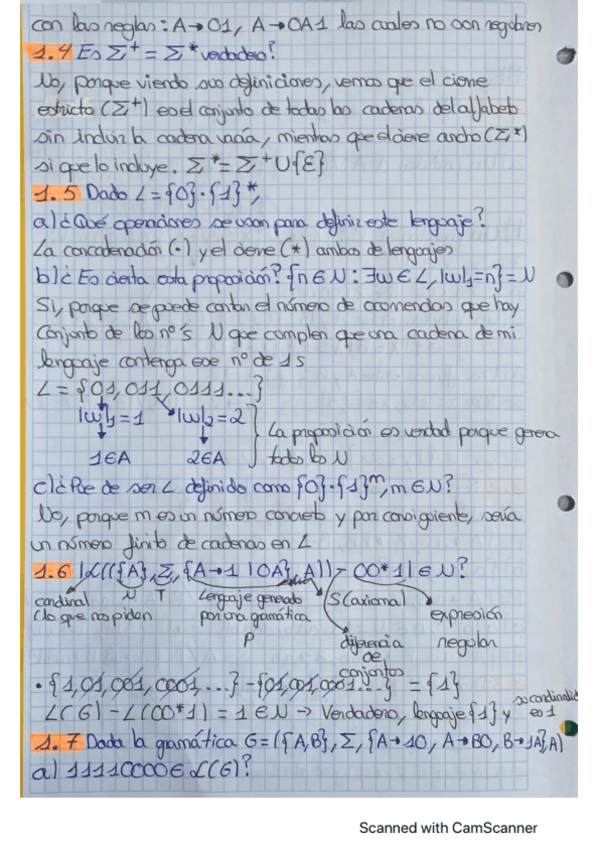 con las reglas: A→01, A→0A1 las cuales no son regulares
1.4 Es Σ⁺ = Σ* verdadero?
No, porque viendo sus definiciones, vemos que el cierre
estricto (Σ⁺) es el conjunto de todas las cadenas del alfabeto
sin incluir la cadena vacía, mientras que el cierre ancho (Σ*)
si que lo incluye. Σ* = Σ⁺ U {ε}
1.5 Dado L = {0}·{1}*,
a) ¿Qué operaciones se usan para definir este lenguaje?
La concatenación (·) y el cierre (*) ambos de lenguajes
b) ¿Es cierta esta proposición? {n ∈ N : ∃w ∈ L, |w|₁=n} = N
Si, porque se puede contar el número de ocurrencias que hay
Conjunto de los nº's N que cumplen que una cadena de mi
lenguaje contenga ese nº de 1s
L = {01, 011, 0111...}
|w|₁=1 |w|₂=2
La proposición es verdad porque genera
1∈A 2∈A todos los N
c) ¿Pue de ser L definido como {0}·{1}ᵐ, m ∈ N?
No, porque m es un número concreto y por consiguiente, sería
un número finito de cadenas en L
1.6 |L(({A}, Σ, {A→1 | 0A}, A)) - 00*1| ∈ N?
cardinal N T Lenguaje generado S (axioma)
(lo que nos piden por una gramática expresión
P diferencia regular
de
conjuntos
· {1, 01, 001, 0001...} - {01, 001, 0001...} = {1}
L(G) - L(00*1) = 1 ∈ N → Verdadero, lenguaje {1} y su cardinalidad
es 1
1.7 Dada la gramática G = ({A,B}, Σ, {A→10, A→B0, B→1A}, A)
a) 11110000 ∈ L(G)?
Scanned with CamScanner